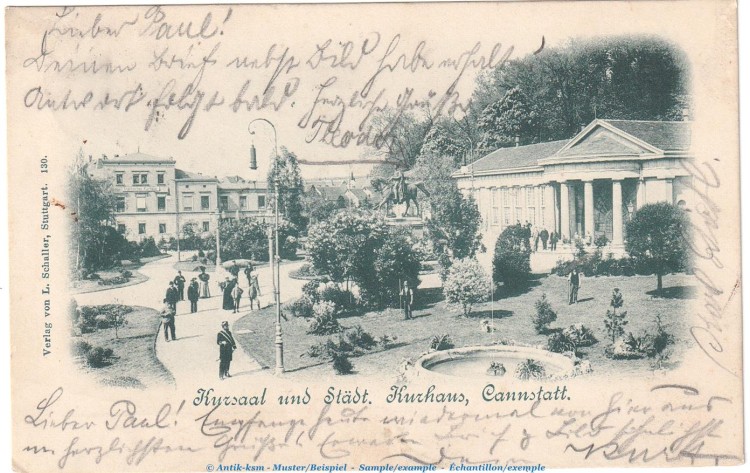 Lieber Paul!
Deinen Brief nebst Bild habe erhalten
Antwort folgt bald. Herzliche Grüße
Theodor
Verlag von L. Schaller, Stuttgart. 130.
Kursaal und Städt. Kurhaus, Cannstatt.
Lieber Paul! Empfange heute wiedermal von hier aus
im herzlichsten Grüße! Brief & Bild
© Antik-ksm - Muster/Beispiel - Sample/example - Échantillon/exemple